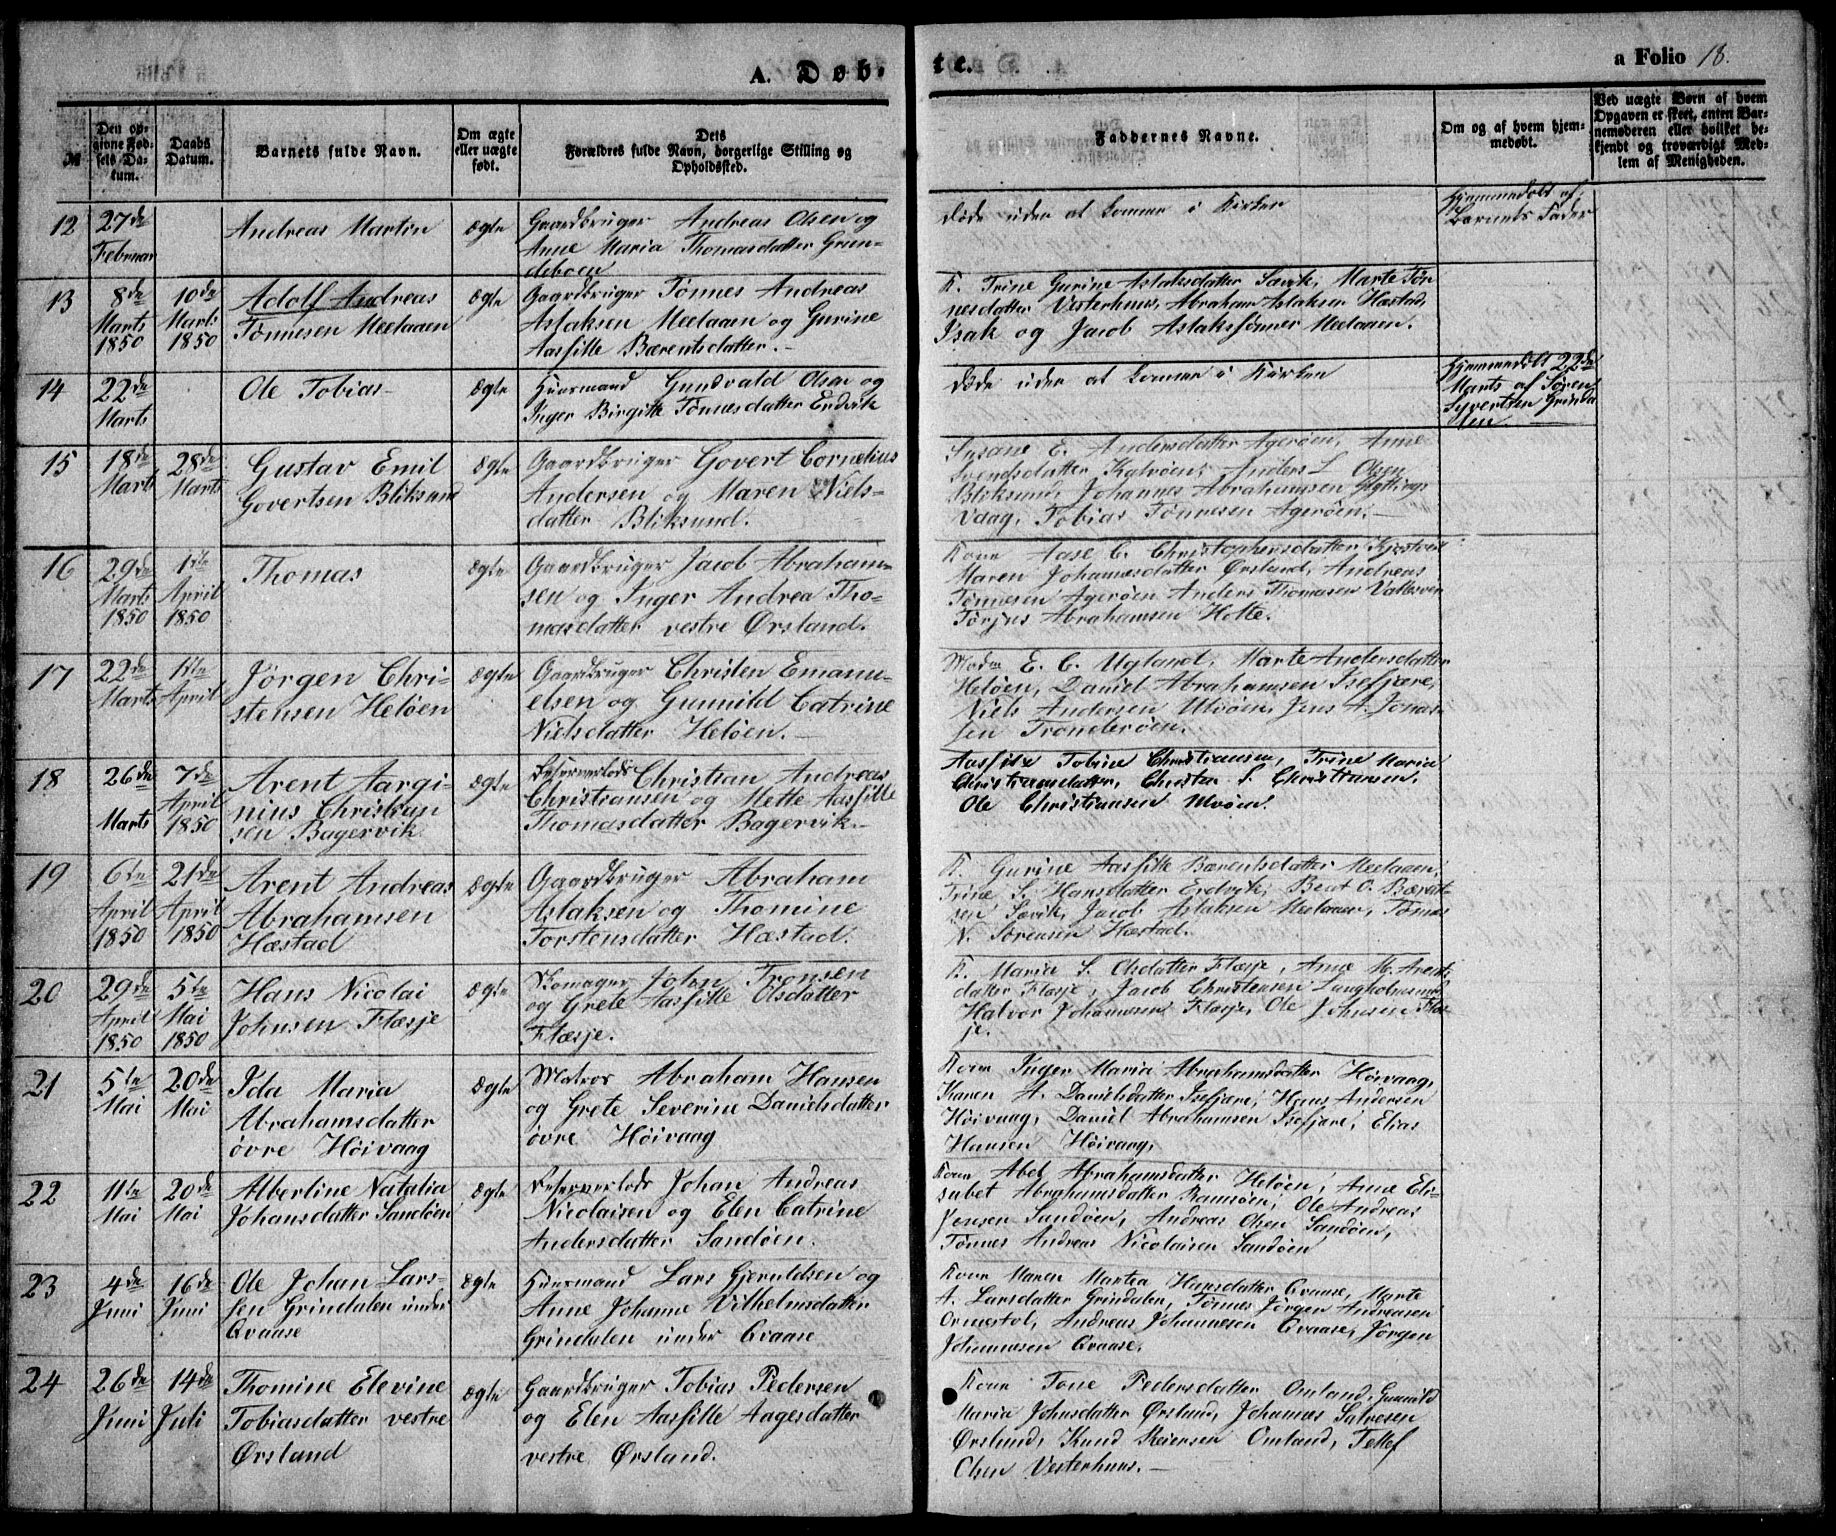 A. Døb-
te.
a Folio 18.
№
Den op-
givne Fød-
sels Da-
tum.
Daabs
Datum.
Barnets fulde Navn.
Om ægte
eller uægte
født.
Dets
Forældres fulde Navn, borgerlige Stilling og
Opholdssted.
Faddernes Navne.
Om og af hvem hjem-
medøbt.
Ved uægte Børn af hvem
Opgaven er skeet, enten Bar-
nemoderen eller hvilket be-
kjendt og troværdigt Med-
lem af Menigheden.
12
27de
Februar
Andreas Martin
ægte
Gaardbruger Andreas Olsen og
Anne Maria Thomasdatter Grun-
deboen
døde uden at komme i Kirken
Hjemmedøbt af
Barnets Fader
13
8de
Marts
1850
10de
Marts
1850
Adolf Andreas
Tønnesen Meelaaen
ægte
Gaardbruger Tønnes Andreas
Aslaksen Meelaaen og Gurine
Aassille Bærentsdatter.
K. Trine Gurine Aslaksdatter Savik, Marte Tøn-
nesdatter Vesterhuus, Abraham Aslaksen Hæstad,
Isak og Jacob Aslakssønner Meelaaen.
14
22de
Marts
Ole Tobias
ægte
Huusmand Gundvald Olsen og
Inger Birgitte Tønnesdatter Erdvik
døde uden at komme i Kirken
Hjemmedøbt 22de
Marts af Søren
Syvertsen Grinda
len
15
18de
Marts
28de
Marts
Gustav Emil
Govertsen Bliksund
ægte
Gaardbruger Govert Cornelius
Andersen og Maren Niels-
datter Bliksund.
Susane E. Andersdatter Agerøen, Anne
Svendsdatter Kalvøen, Anders L Olsen
Bliksund, Johannes Abrahamsen
Vaag, Tobias Tønnesen Agerøen.
16
29de
Marts
1850
1ste
April
1850
Thomas
ægte
Gaardbruger Jacob Abraham-
sen og Inger Andrea Tho-
masdatter vestre Ørsland.
Kone Aase C. Christophersdatter
Maren Johannesdatter Ørsland, Andreas
Tønnesen Agerøen Anders Thomasen Vallesver
Tørjus Abrahamsen Holte.
17
22de
Marts
1ste
April
Jörgen Chri-
stensen Heløen
ægte
Gaardbruger Christen Emanu-
elsen og Gunnild Catrine
Nielsdatter Heløen.
Madm E. C. Ugland, Marte Andersdatter
Heløen, Daniel Abrahamsen Isefjære,
Niels Andersen Ulvøen, Jens A. Jonas-
sen Tronderøen.
18
26de
Marts
7de
April
1850
Arent Aargi-
nius Christian
sen Bagervik
ægte
Reserverlods Christian Andreas
Christiansen og Mette Aassille
Thomasdatter Bagervik.
Aassille Tobine Christiansen, Trine Maria
Christiansdatter, Christen S. Christiansen,
Ole Christiansen Ulvøen.
19
6te
April
1850
21de
April
1850
Arent Andreas
Abrahamsen
Hæstad
ægte
Gaardbruger Abraham
Aslaksen og Thomine
Torstensdatter Hæstad.
K. Gurine Aassille Bærentsdatter Meelaaen,
Trine S. Hansdatter Erdvik, Beat O. Bærent-
sen Sævik, Jacob Aslaksen Meelaaen, Tønnes
N. Sørensen Hæstad.
20
29de
April
1850
5te
Mai
1850
Hans Nicolai
Johnsen Flæsje
ægte
Skomager John Tronsen
og Grete Aassille Olsdatter
Flæsje.
K. Maria S. Olsdatter Flæsje, Anne M. Arents-
datter Flæsje, Jacob Christensen Langholmsund
Halvor Johannesen Flæsje, Ole Johnsen Flæs-
je.
21
5te
Mai
20de
Mai
Ida Maria
Abrahamsdatter
övre Höivaag
ægte
Matros Abraham Hansen
og Grete Severine Danielsdatter
övre Höivaag
Kone Inger Maria Abrahamsdatter Höivaag,
Karen A. Danielsdatter Isefjære, Hans Andersen
Höivaag, Daniel Abrahamsen Isefjære, Elias
Hansen Höivaag,
22
11te
Mai
20de
Mai
Albertine Natalia
Johansdatter Sandøen
ægte
Reserverlods Johan Andreas
Nicolaisen og Elen Catrine
Andersdatter Sandøen.
Kone Abel Abrahamsdatter Heløen, Anne Eli-
sabet Abrahamsdatter Ramsøen, Ole Andreas
Jensen Sandøen, Andreas Olsen Sandøen,
Tønnes Andreas Nicolaisen Sandøen
23
4de
Juni
16de
Juni
Ole Johan Lars-
sen Grindalen under
Qvaase
ægte
Huusmand Lars Gjeruldsen og
Anne Johanne Vilhelmsdatter
Grindalen under Qvaase
Kone Maren Martea Hansdatter Qvaase, Marte
A. Larsdatter Grindalen, Tønnes Jörgen Andreasen
Ormestol, Andreas Johannesen Qvaase, Jörgen
Johannesen Qvaase.
24
26de
Juni
14de
Juli
Thomine Elevine
Tobiasdatter vestre
Ørsland
ægte
Gaardbruger Tobias Pedersen
og Elen Aassille Aagesdatter
vestre Ørsland.
Kone Tone Pedersdatter Omland, Gunnild
Maria Johnsdatter Ørsland, Johannes Salvesen
Ørslund, Knud Reiersen Omland, Tellef
Olsen Vesterhuus.